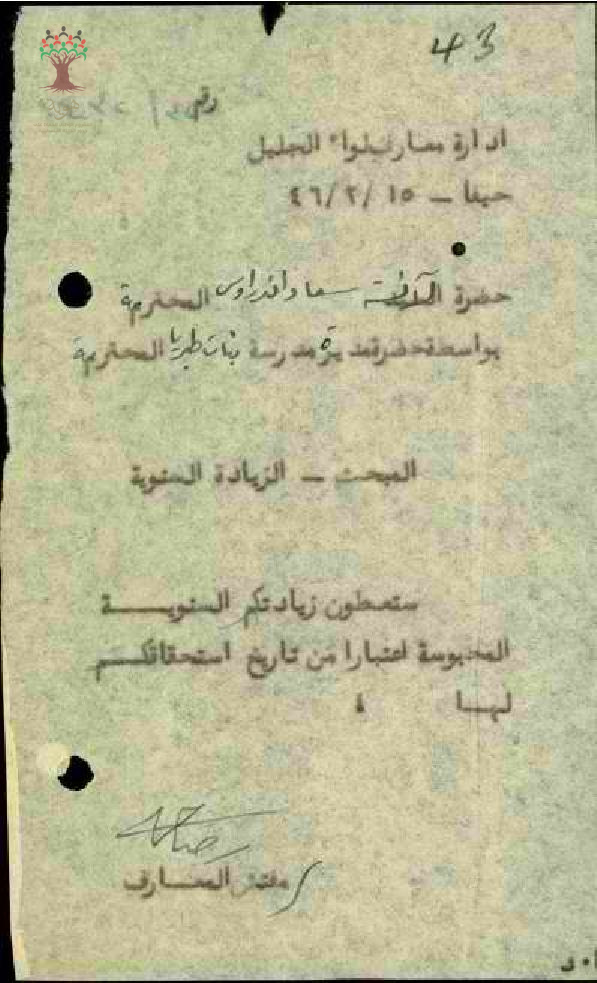 43
رقم
ادارة معارف لواء الجليل
حيفا – ١٥ /٢/ ٤٦
حضرة الآنسة سعاد المحترمة
بواسطة حضرة مديرة مدرسة بنات طبريا المحترمة
المبحث – الزيادة السنوية
ستعطون زيادتكم السنويــــة
المحبوسة اعتبارا من تاريخ استحقاقكــم
لهــا ،
مفتش المعــارف